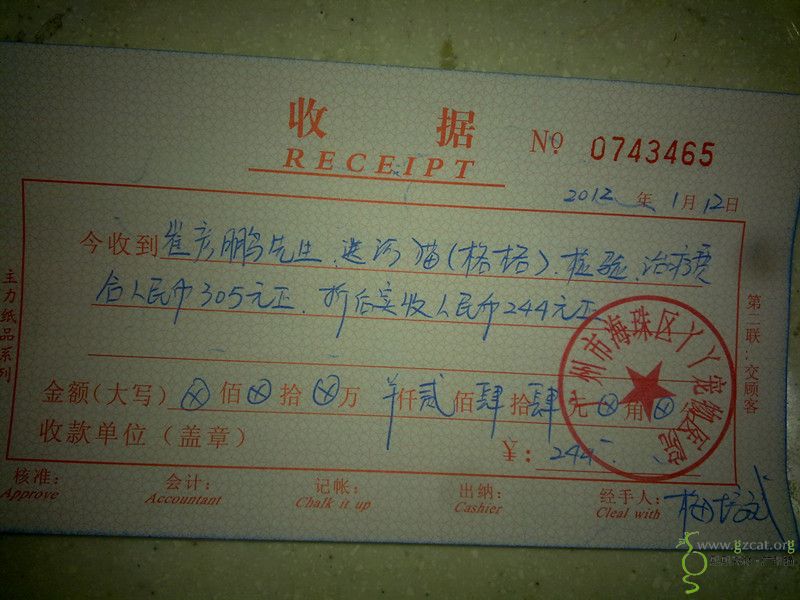 收 据
RECEIPT
No 0743465
2012 年 1 月 12 日
今收到 崔彦鹏先生、送河猫(格格)、检验、治疗费
合人民币305元正、折后实收人民币244元正
金额(大写) ⊗ 佰 ⊗ 拾 ⊗ 万 仟 贰 佰 肆 拾 肆 元 ⊗ 角 ⊗ 分
收款单位(盖章)
¥: 244
广州市海珠区丫丫宠物医院
核准: 会计: 记帐: 出纳: 经手人:
Approve Accountant Chalk it up Cashier Cleal with
主力纸品系列
第二联:交顾客
www.gzcat.org